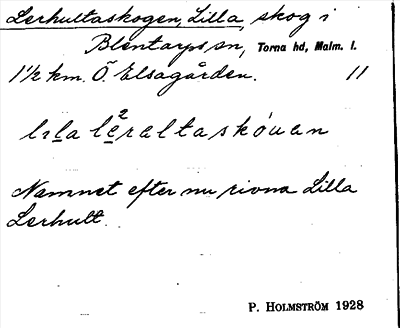 Lerhultaskogen, Lilla, skog i
Blentarps sn, Torna hd, Malm. l.
1½ km. Ö. Elsagården. 11
Namnet efter nu rivna Lilla
Lerhult.
P. HOLMSTRÖM 1928